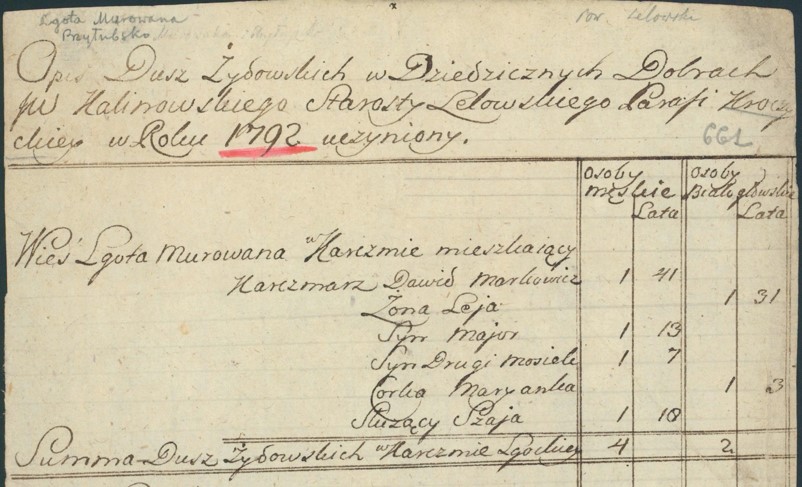 Lgota Murowana
Brzytubsko
Pow. Lelowski
Opis Dusz Żydowskich w Dziedzicznych Dobrach
JW Kalinowskiego Starosty Lelowskiego Parafi Kroczy
ckiey w Roku 1792 uczyniony.
661
Osoby męskie Lata Osoby Białogłowskie Lata
Wieś Lgota Murowana w Karczmie mieszkaiący
Karczmarz Dawid Markowicz 1 41
Żona Leja 1 31
Syn Major 1 13
Syn Drugi Mosiek 1 7
Corka Maryanka 1 3
Służący Szaja 1 18
Summa Dusz Żydowskich w Karczmie Lgockiey 4 2